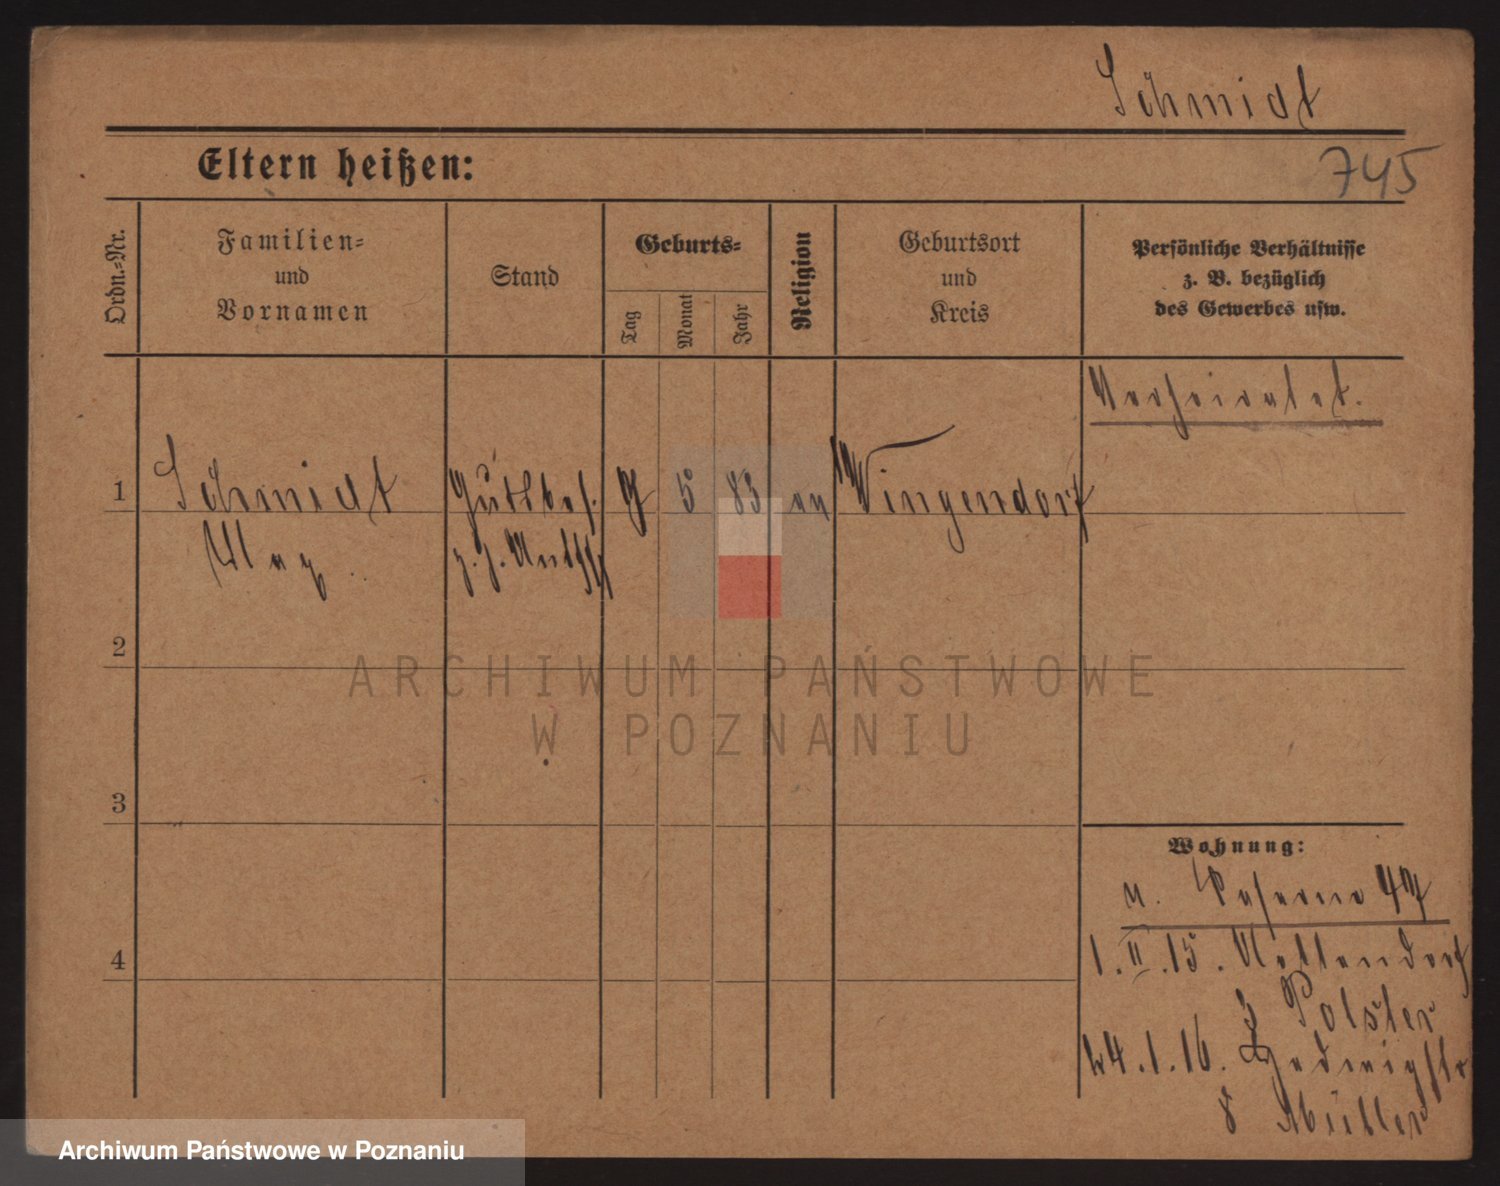 Schmidt
Eltern heißen:
745
Ordn.=Nr.
Familien=
und
Vornamen
Stand
Geburts=
Tag
Monat
Jahr
Religion
Geburtsort
und
Kreis
Persönliche Verhältnisse
z. B. bezüglich
des Gewerbes usw.
Verheiratet.
1
Schmidt
Gutsbes.
5
83
ev
Wingendorf
Max
z. Z.
2
ARCHIWUM PAŃSTWOWE
W POZNANIU
3
Wohnung:
n. Kaserne 47
4
1.II.15. Nettendorf
Polster
24.1.16. Hedwigstr
8 Müller
Archiwum Państwowe w Poznaniu